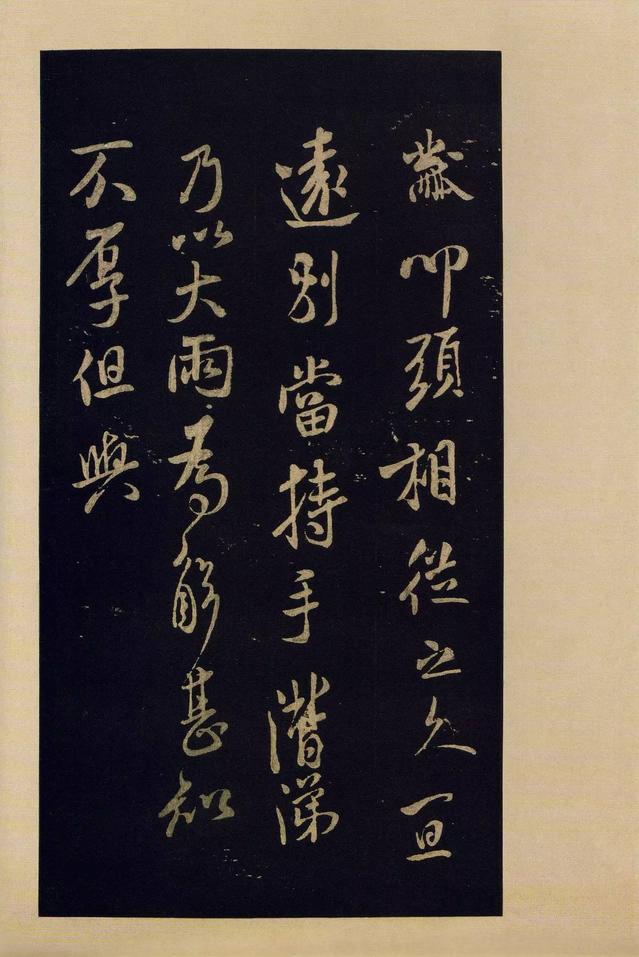 黻叩頭相從之久一旦
遠別當持手潸涕
乃以大雨為解甚知
不厚但與